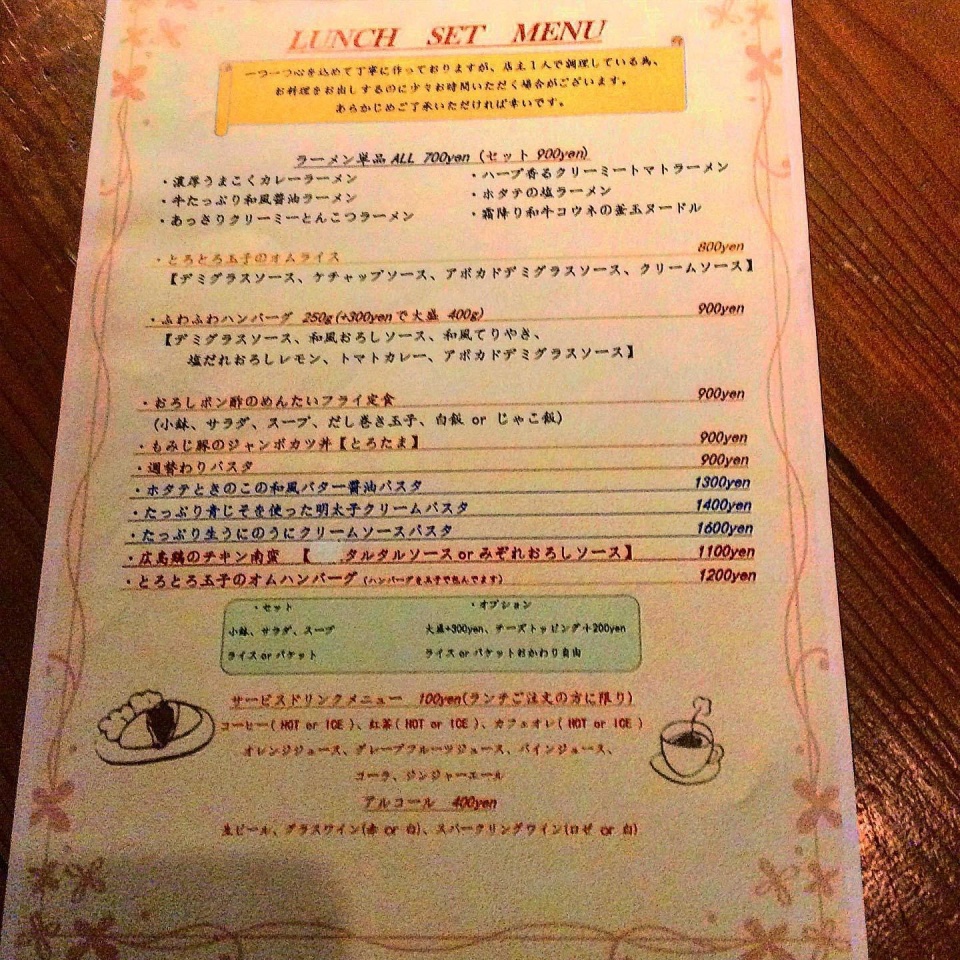 LUNCH SET MENU
一つ一つ心を込めて丁寧に作っておりますが、店主1人で調理している為、
お料理をお出しするのに少々お時間いただく場合がございます。
あらかじめご了承いただければ幸いです。
ラーメン単品 ALL 700yen (セット 900yen)
・濃厚うまこくカレーラーメン
・牛たっぷり和風醤油ラーメン
・あっさりクリーミーとんこつラーメン
・ハーブ香るクリーミートマトラーメン
・ホタテの塩ラーメン
・霜降り和牛コウネの釜玉ヌードル
・とろとろ玉子のオムライス 800yen
【デミグラスソース、ケチャップソース、アボカドデミグラスソース、クリームソース】
・ふわふわハンバーグ 250g(+300yenで大盛 400g) 900yen
【デミグラスソース、和風おろしソース、和風てりやき、
塩だれおろしレモン、トマトカレー、アボカドデミグラスソース】
・おろしポン酢のめんたいフライ定食 900yen
(小鉢、サラダ、スープ、だし巻き玉子、白飯 or じゃこ飯)
・もみじ豚のジャンボカツ丼【とろたま】 900yen
・週替わりパスタ 900yen
・ホタテときのこの和風バター醤油パスタ 1300yen
・たっぷり青じそを使った明太子クリームパスタ 1400yen
・たっぷり生うにのうにクリームソースパスタ 1600yen
・広島鶏のチキン南蛮 【 タルタルソース or みぞれおろしソース】 1100yen
・とろとろ玉子のオムハンバーグ (ハンバーグを玉子で包んでます) 1200yen
・セット
小鉢、サラダ、スープ
ライス or バケット
・オプション
大盛+300yen、チーズトッピング+200yen
ライス or バケットおかわり自由
サービスドリンクメニュー 100yen(ランチご注文の方に限り)
コーヒー( HOT or ICE )、紅茶( HOT or ICE )、カフェオレ( HOT or ICE )
オレンジジュース、グレープフルーツジュース、パインジュース、
コーラ、ジンジャーエール
アルコール 400yen
生ビール、グラスワイン(赤 or 白)、スパークリングワイン(ロゼ or 白)